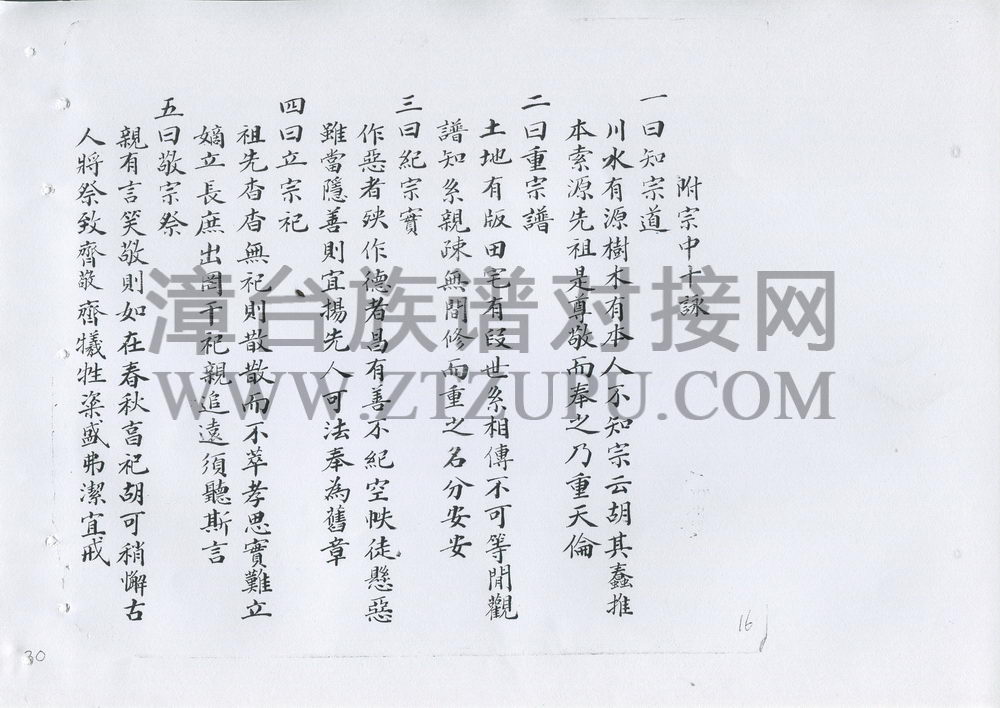 附宗中十詠
一曰知宗道
川水有源樹木有本人不知宗云胡其蠢推
本索源先祖是尊敬而奉之乃重天倫
二曰重宗譜
土地有版田宅有段世系相傳不可等閒觀
譜知系親疎無間修而重之名分安安
三曰紀宗實
作惡者殃作德者昌有善不紀空帙徒懸惡
雖當隱善則宜揚先人可法奉為舊章
四曰立宗祀
祖先杳杳無祀則散散而不萃孝思實難立
嫡立長庶出罔干祀親追遠須聽斯言
五曰敬宗祭
親有言笑敬則如在春秋亯祀胡可稍懈古
人將祭致齊敬齊犧牲粢盛弗潔宜戒
漳台族谱对接网
WWW.ZTZUPU.COM
16
30